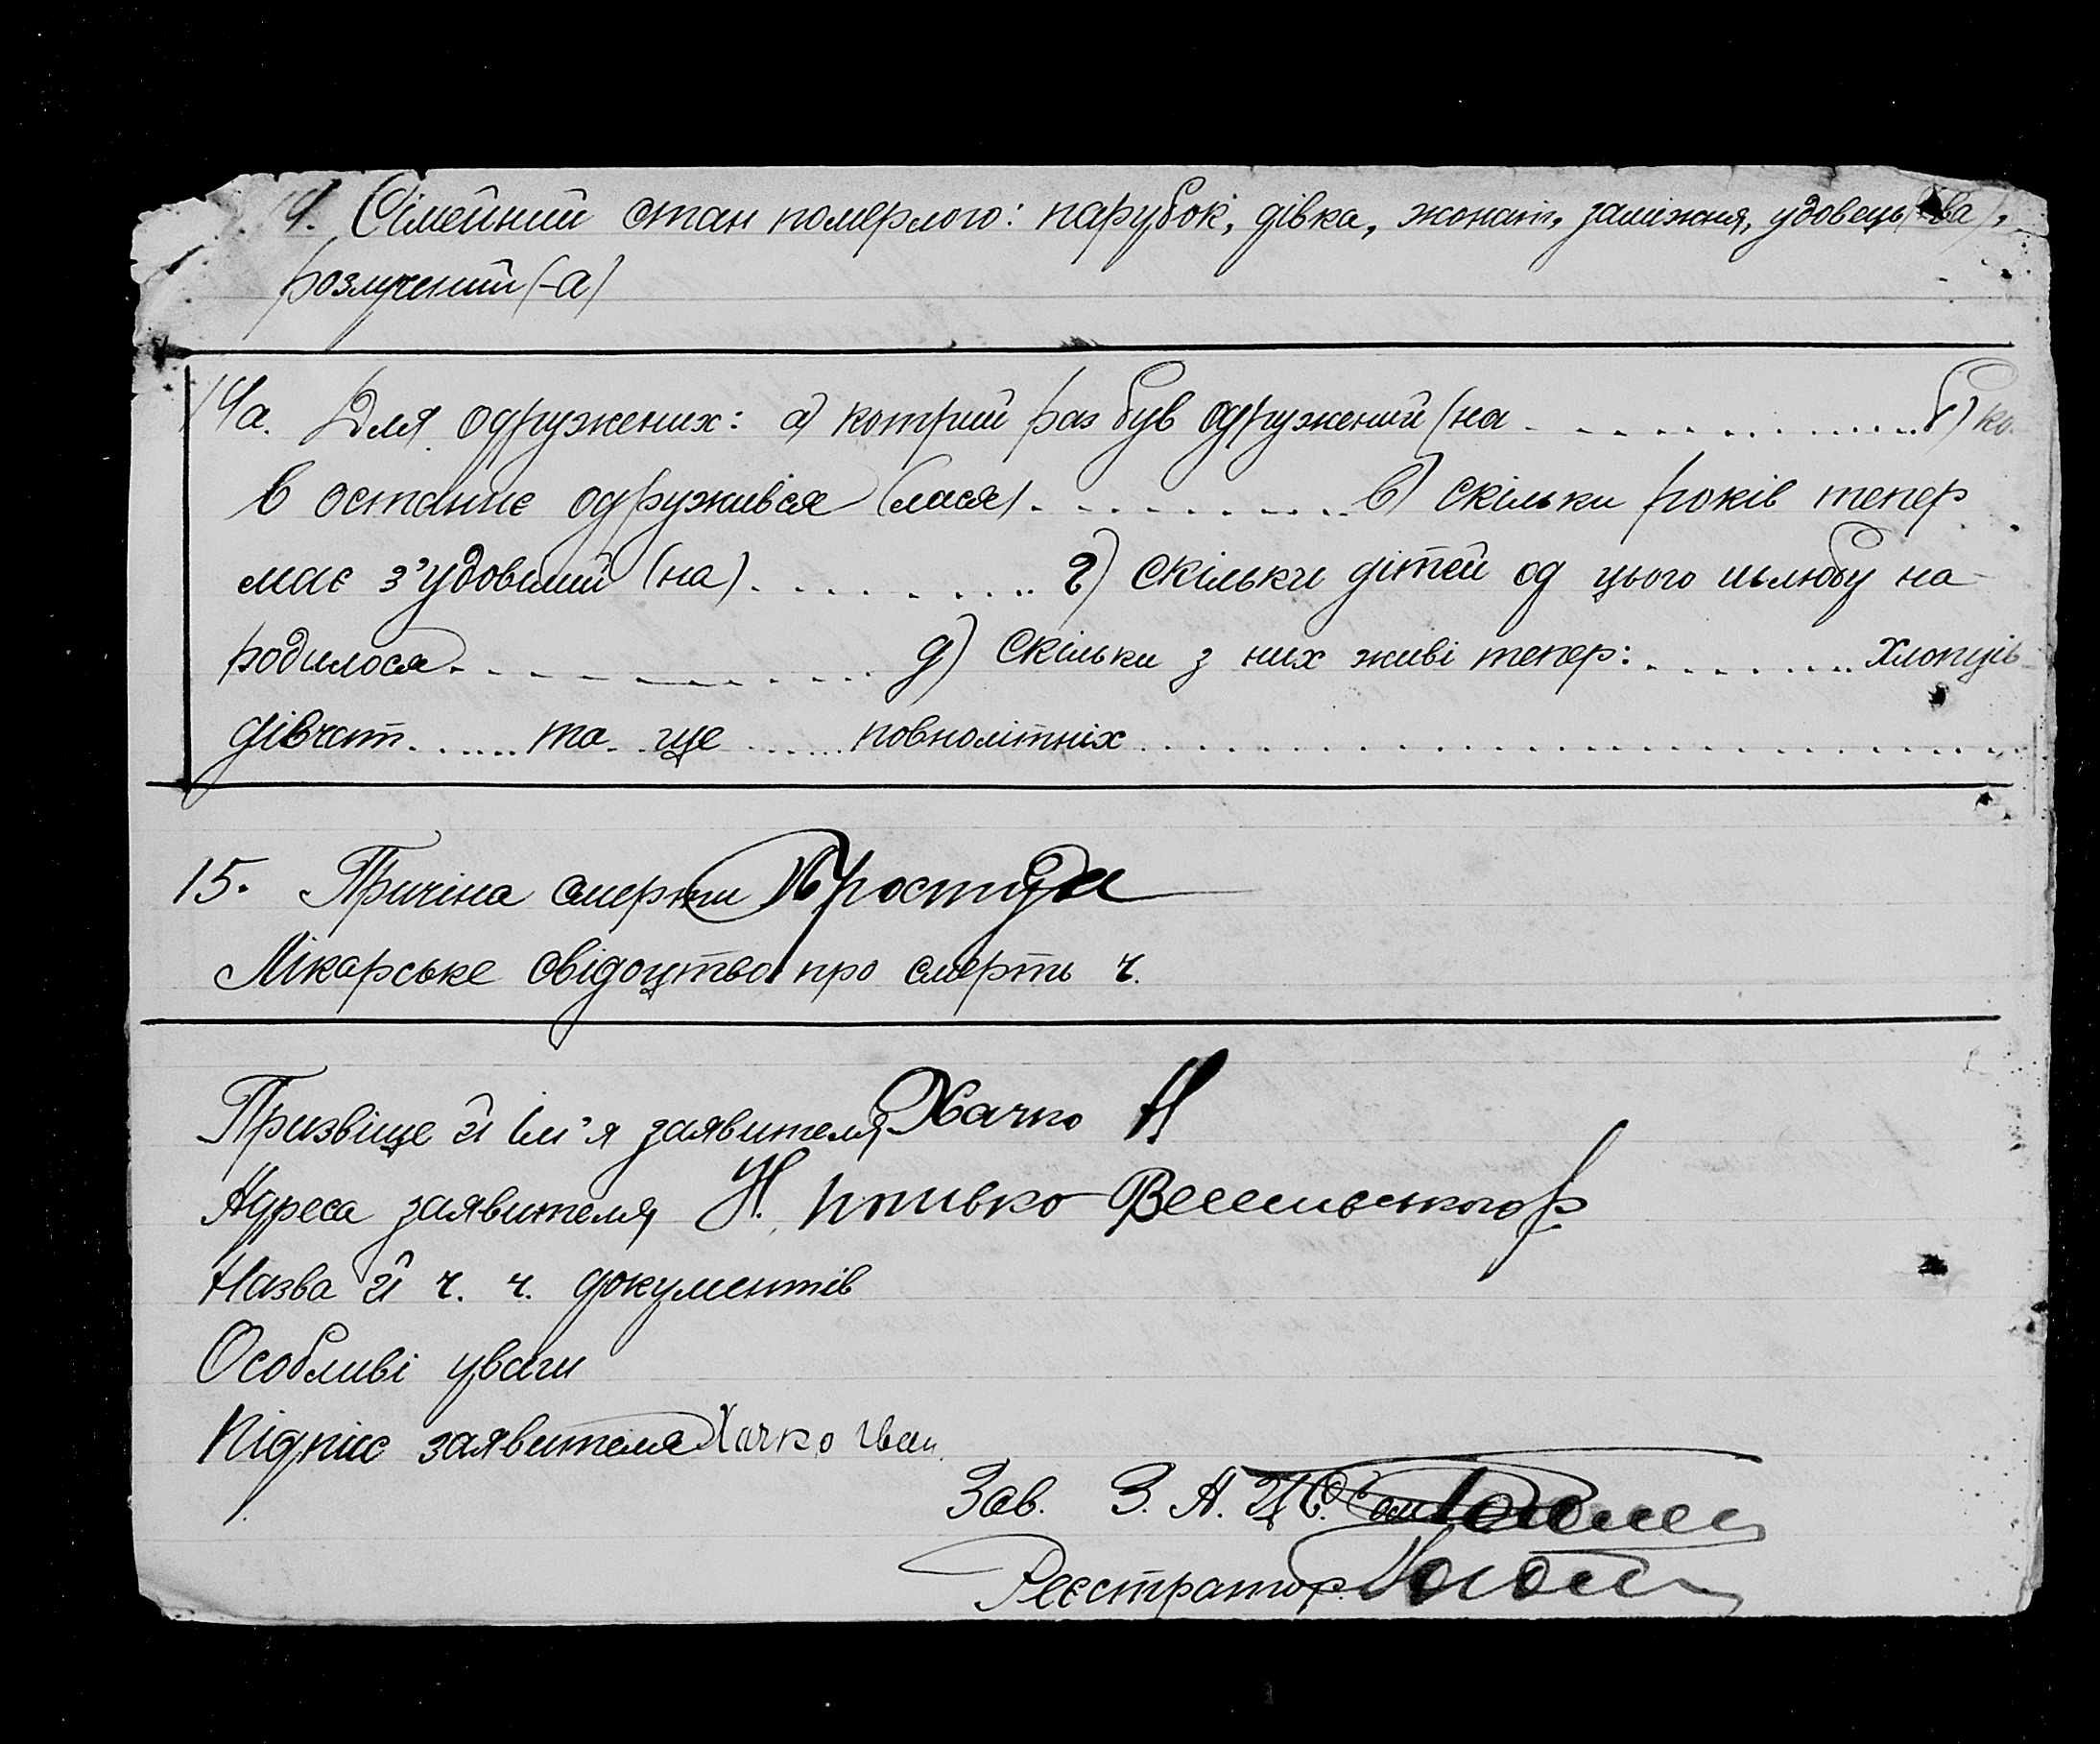 14. Сімейний стан померлого: парубок, дівка, жонат, заміжня, удовець (ва),
розлучений (-а)
14а. Для одружених: а) котрий раз був одружений (на ............ б) ко
в останнє одружився (лася) ............ в) скільки років тепер
має з'удовілий (на) ............ г) скільки дітей од цього шлюбу на-
родилося ............ д) скільки з них живі тепер: ........ хлопців
дівчат ...... та ще ...... повнолітніх ............
15. Причіна смерти Простуда
Лікарське свідоцтво про смерть ч.
Призвіще й ім'я заявителя Хачко
Адреса заявителя Н.
Назва й ч. ч. документів
Особливі уваги
Підпис заявителя Хачко Іван
Зав. З. А. Г. С.
Реєстратор